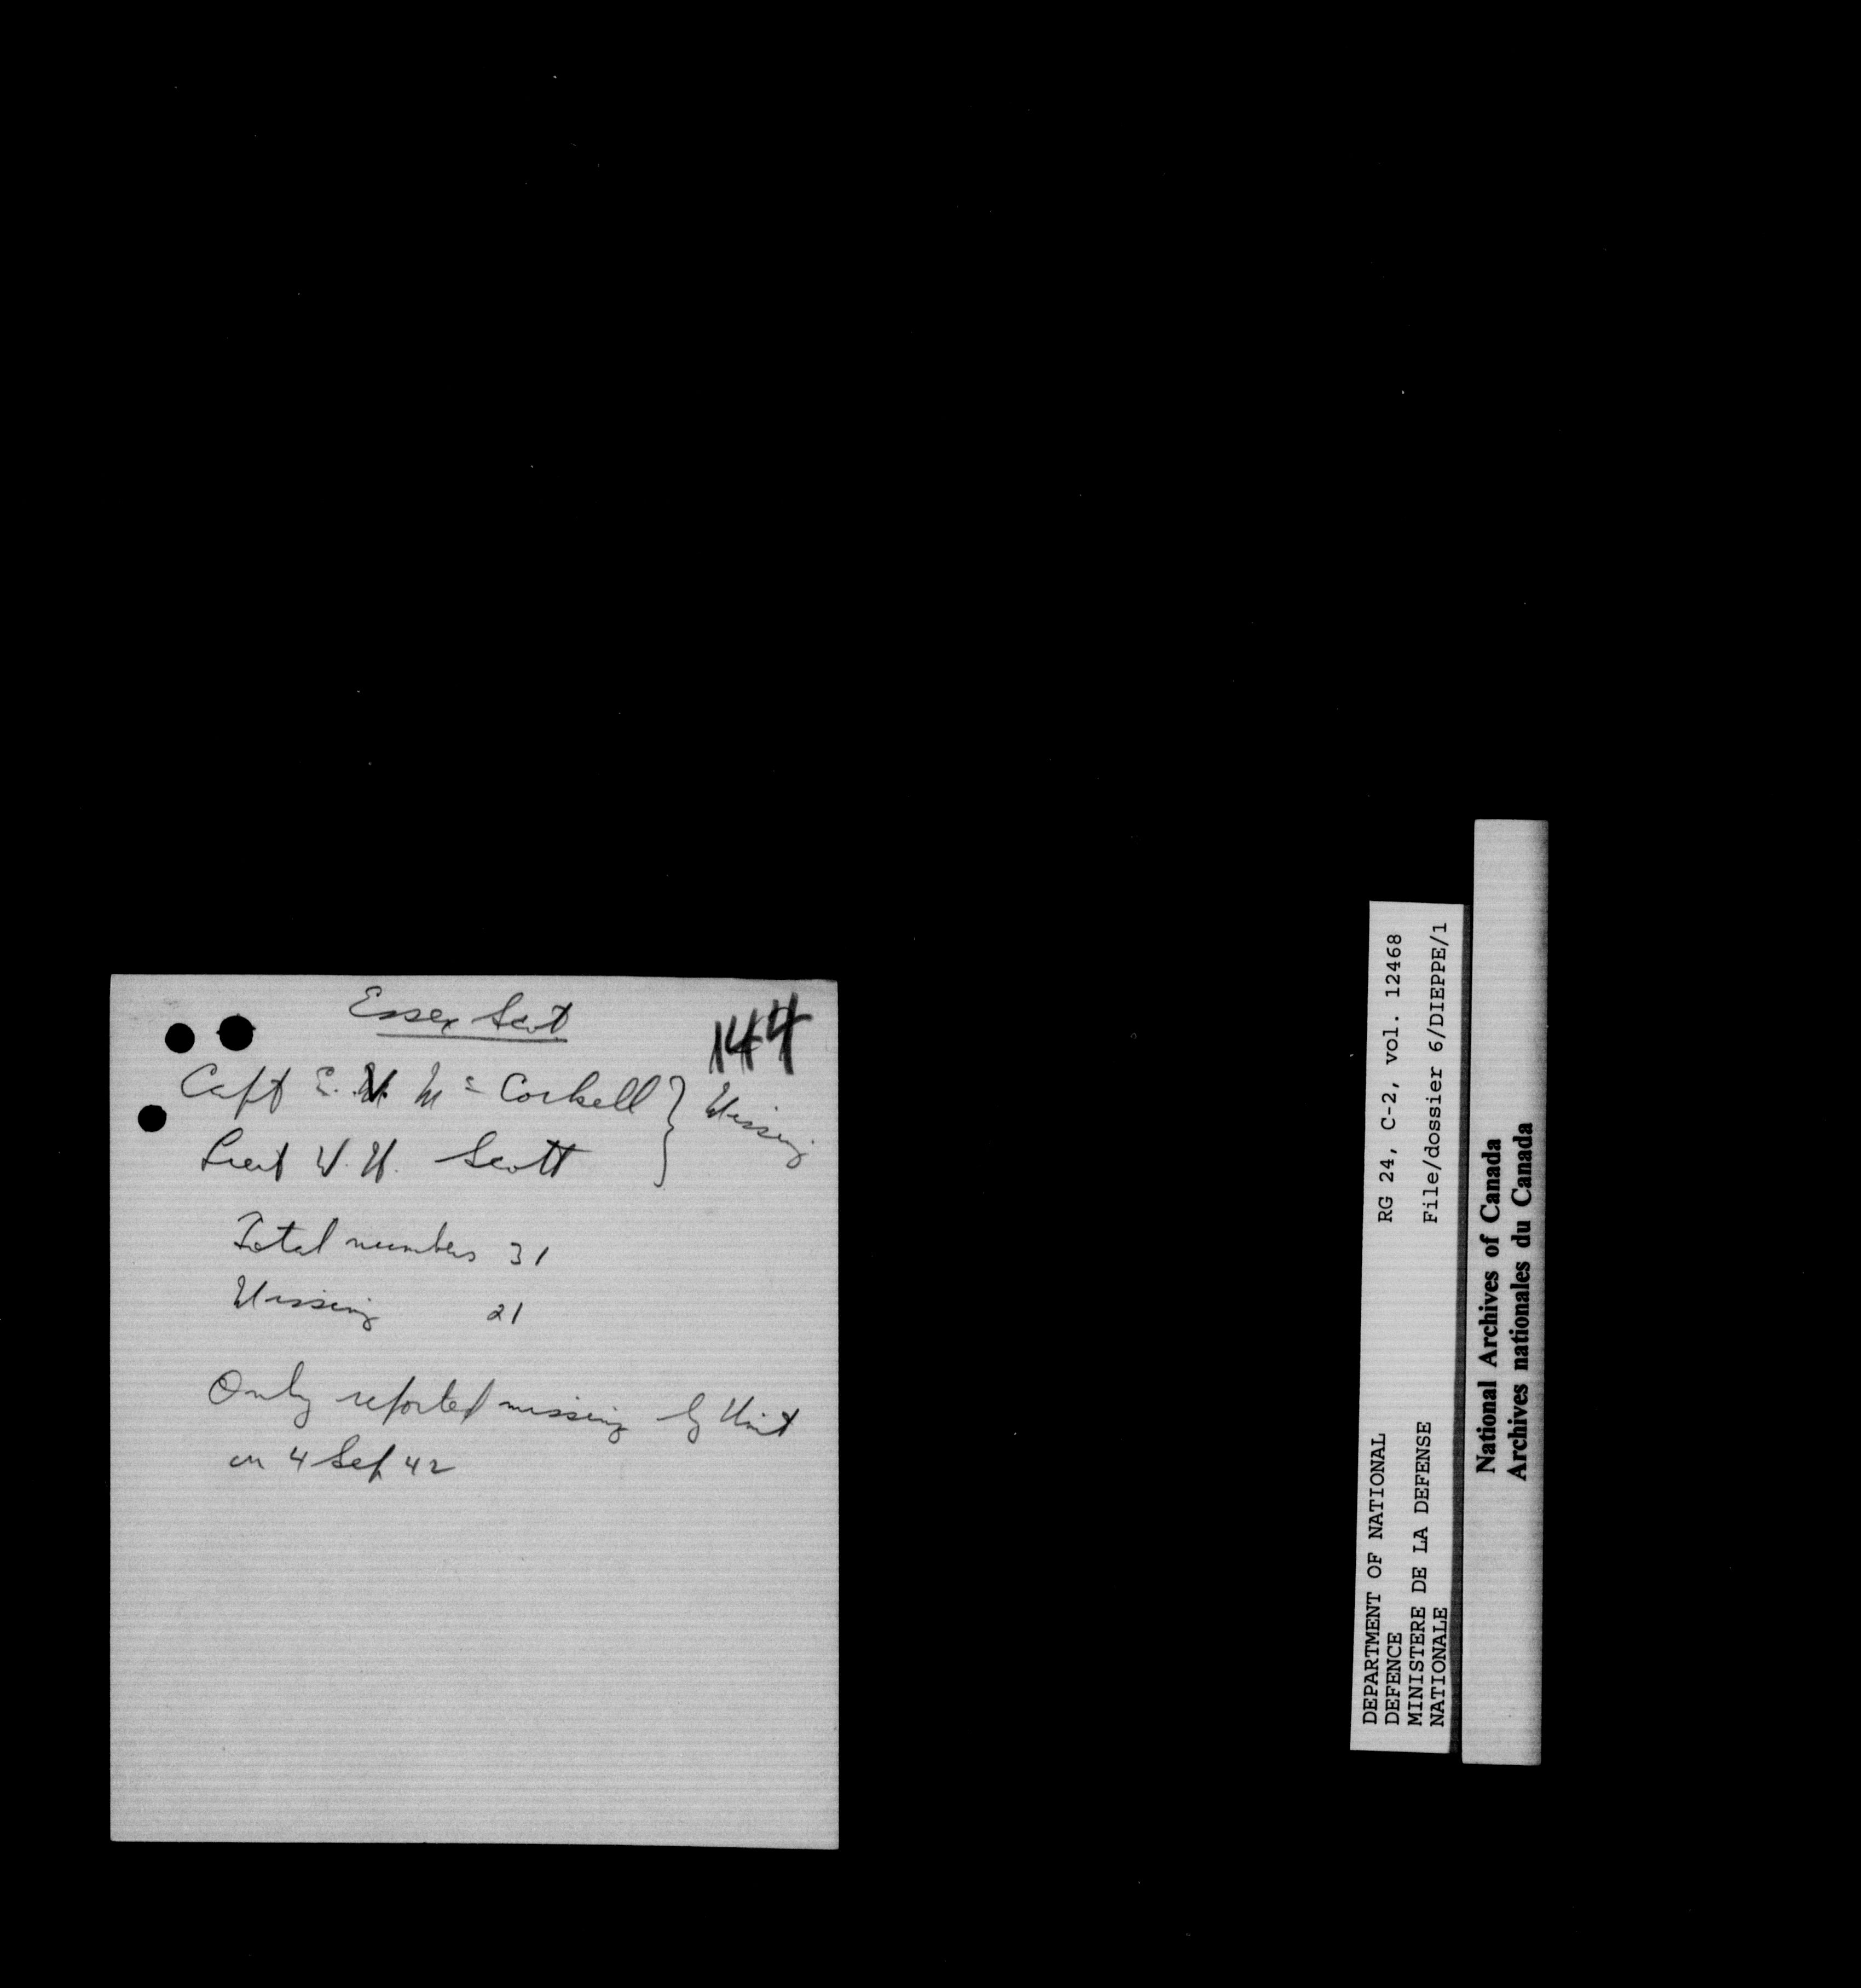 Essex Scot
144
Capt E. V. Mc Corkell } Missing
Lieut W. H. Scott
Total numbers 31
Missing 21
Only reported missing by Unit
on 4 Sep 42
DEPARTMENT OF NATIONAL
DEFENCE
MINISTERE DE LA DEFENSE
NATIONALE
RG 24, C-2, vol. 12468
File/dossier 6/DIEPPE/1
National Archives of Canada
Archives nationales du Canada